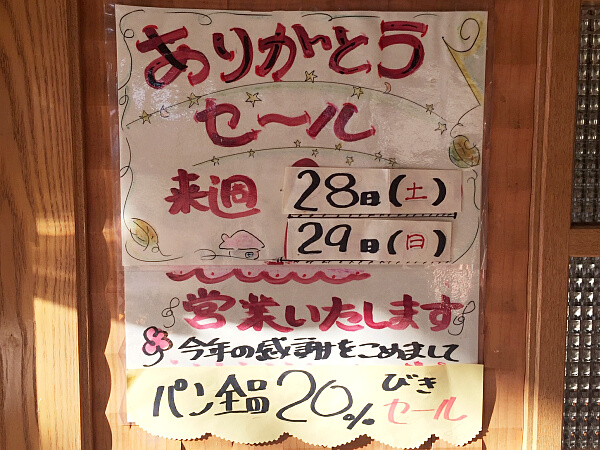 ありがとう
セール
来週 28日(土)
29日(日)
営業いたします
今年の感謝をこめまして
パン全品20%びき
セール